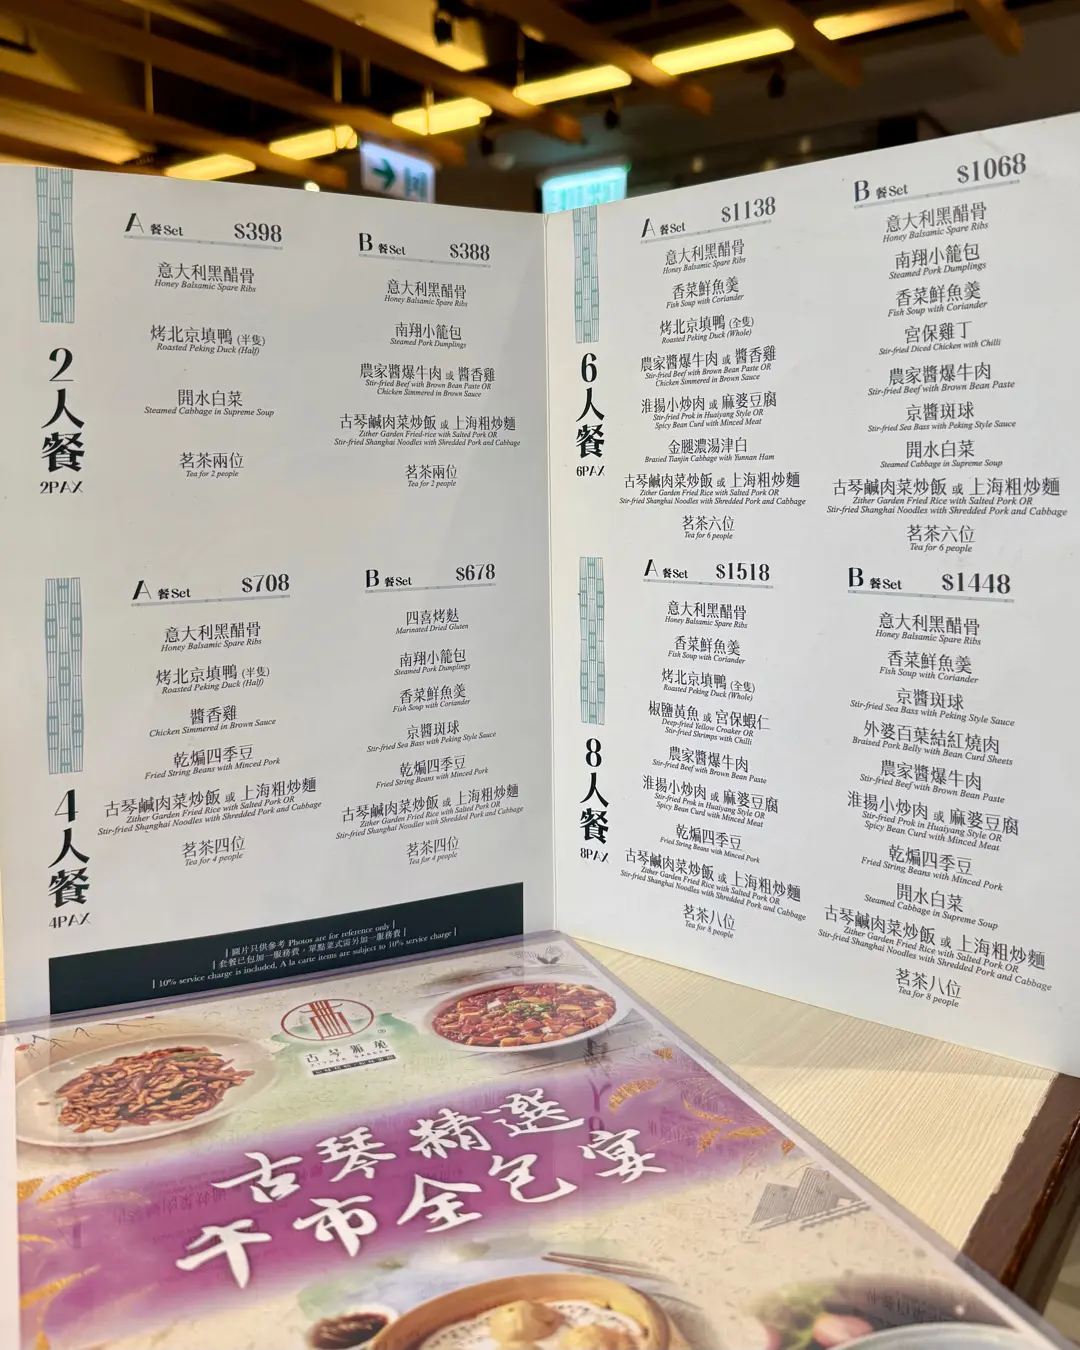 2人餐
2PAX
A 餐Set $398
意大利黑醋骨
Honey Balsamic Spare Ribs
烤北京填鴨 (半隻)
Roasted Peking Duck (Half)
開水白菜
Steamed Cabbage in Supreme Soup
茗茶兩位
Tea for 2 people
B 餐Set $388
意大利黑醋骨
Honey Balsamic Spare Ribs
南翔小籠包
Steamed Pork Dumplings
農家醬爆牛肉 或 醬香雞
Stir-fried Beef with Brown Bean Paste OR
Chicken Simmered in Brown Sauce
古琴鹹肉菜炒飯 或 上海粗炒麵
Zither Garden Fried-rice with Salted Pork OR
Stir-fried Shanghai Noodles with Shredded Pork and Cabbage
茗茶兩位
Tea for 2 people
4人餐
4PAX
A 餐Set $708
意大利黑醋骨
Honey Balsamic Spare Ribs
烤北京填鴨 (半隻)
Roasted Peking Duck (Half)
醬香雞
Chicken Simmered in Brown Sauce
乾煸四季豆
Fried String Beans with Minced Pork
古琴鹹肉菜炒飯 或 上海粗炒麵
Zither Garden Fried Rice with Salted Pork OR
Stir-fried Shanghai Noodles with Shredded Pork and Cabbage
茗茶四位
Tea for 4 people
B 餐Set $678
四喜烤麩
Marinated Dried Gluten
南翔小籠包
Steamed Pork Dumplings
香菜鮮魚羹
Fish Soup with Coriander
京醬斑球
Stir-fried Sea Bass with Peking Style Sauce
乾煸四季豆
Fried String Beans with Minced Pork
古琴鹹肉菜炒飯 或 上海粗炒麵
Zither Garden Fried Rice with Salted Pork OR
Stir-fried Shanghai Noodles with Shredded Pork and Cabbage
茗茶四位
Tea for 4 people
| 圖片只供參考 Photos are for reference only |
| 套餐已包加一服務費，單點菜式需另加一服務費 |
| 10% service charge is included, A la carte items are subject to 10% service charge |
6人餐
6PAX
A 餐Set $1138
意大利黑醋骨
Honey Balsamic Spare Ribs
香菜鮮魚羹
Fish Soup with Coriander
烤北京填鴨 (全隻)
Roasted Peking Duck (Whole)
農家醬爆牛肉 或 醬香雞
Stir-fried Beef with Brown Bean Paste OR
Chicken Simmered in Brown Sauce
淮揚小炒肉 或 麻婆豆腐
Stir-fried Prok in Huaiyang Style OR
Spicy Bean Curd with Minced Meat
金腿濃湯津白
Brasied Tianjin Cabbage with Yunnan Ham
古琴鹹肉菜炒飯 或 上海粗炒麵
Zither Garden Fried Rice with Salted Pork OR
Stir-fried Shanghai Noodles with Shredded Pork and Cabbage
茗茶六位
Tea for 6 people
B 餐Set $1068
意大利黑醋骨
Honey Balsamic Spare Ribs
南翔小籠包
Steamed Pork Dumplings
香菜鮮魚羹
Fish Soup with Coriander
宮保雞丁
Stir-fried Diced Chicken with Chilli
農家醬爆牛肉
Stir-fried Beef with Brown Bean Paste
京醬斑球
Stir-fried Sea Bass with Peking Style Sauce
開水白菜
Steamed Cabbage in Supreme Soup
古琴鹹肉菜炒飯 或 上海粗炒麵
Zither Garden Fried Rice with Salted Pork OR
Stir-fried Shanghai Noodles with Shredded Pork and Cabbage
茗茶六位
Tea for 6 people
8人餐
8PAX
A 餐Set $1518
意大利黑醋骨
Honey Balsamic Spare Ribs
香菜鮮魚羹
Fish Soup with Coriander
烤北京填鴨 (全隻)
Roasted Peking Duck (Whole)
椒鹽黃魚 或 宮保蝦仁
Deep-fried Yellow Croaker OR
Stir-fried Shrimps with Chilli
農家醬爆牛肉
Stir-fried Beef with Brown Bean Paste
淮揚小炒肉 或 麻婆豆腐
Stir-fried Prok in Huaiyang Style OR
Spicy Bean Curd with Minced Meat
乾煸四季豆
Fried String Beans with Minced Pork
古琴鹹肉菜炒飯 或 上海粗炒麵
Zither Garden Fried Rice with Salted Pork OR
Stir-fried Shanghai Noodles with Shredded Pork and Cabbage
茗茶八位
Tea for 8 people
B 餐Set $1448
意大利黑醋骨
Honey Balsamic Spare Ribs
香菜鮮魚羹
Fish Soup with Coriander
京醬斑球
Stir-fried Sea Bass with Peking Style Sauce
外婆百葉結紅燒肉
Braised Pork Belly with Bean Curd Sheets
農家醬爆牛肉
Stir-fried Beef with Brown Bean Paste
淮揚小炒肉 或 麻婆豆腐
Stir-fried Prok in Huaiyang Style OR
Spicy Bean Curd with Minced Meat
乾煸四季豆
Fried String Beans with Minced Pork
開水白菜
Steamed Cabbage in Supreme Soup
古琴鹹肉菜炒飯 或 上海粗炒麵
Zither Garden Fried Rice with Salted Pork OR
Stir-fried Shanghai Noodles with Shredded Pork and Cabbage
茗茶八位
Tea for 8 people
®
ZITHER GARDEN
古琴精選
午市全包宴